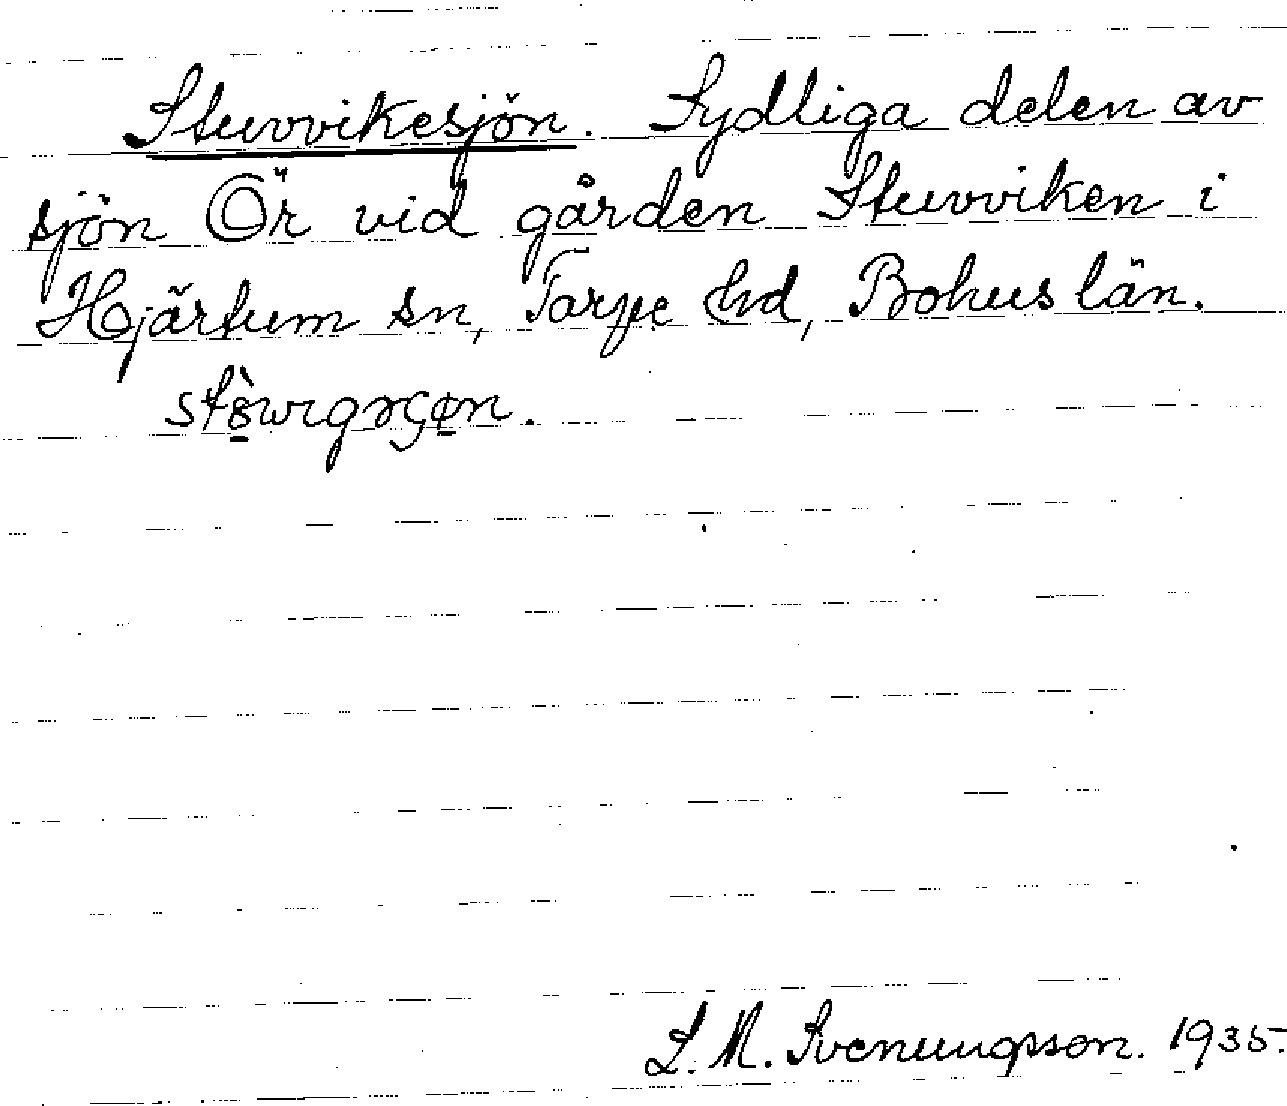 Stuvvikesjön. Sydliga delen av
sjön Ör vid gården Stuvviken i
Hjärtum sn, Torpe hd, Bohus län.
L. M. Svenungsson. 1935.